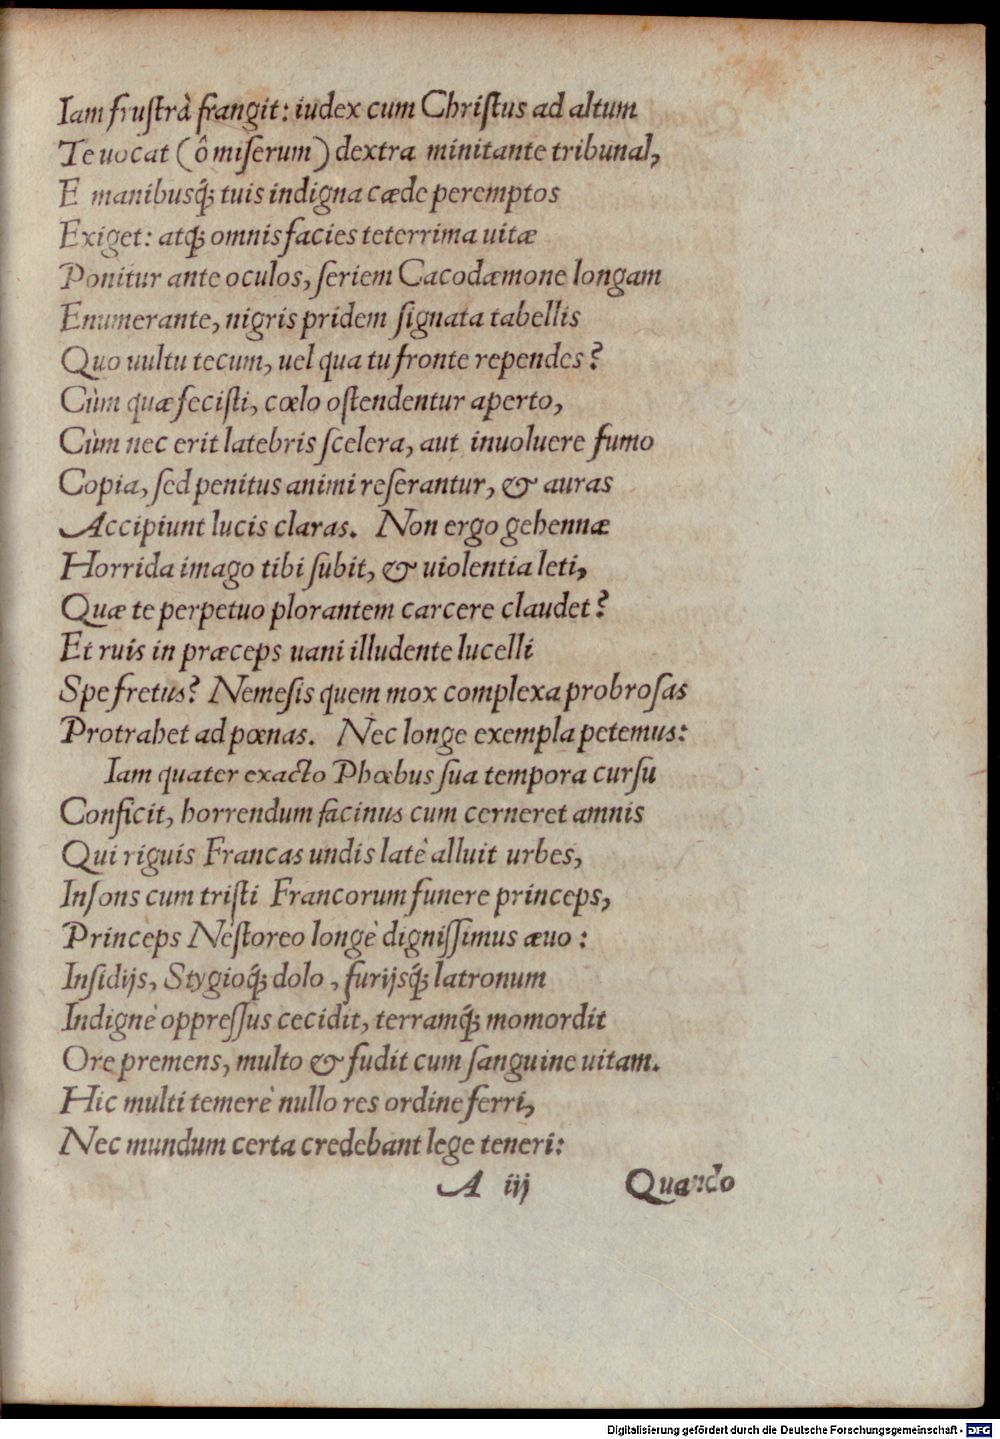 Iam fruſtrà frangit: iudex cum Chriſtus ad altum
Te uocat (ô miſerum) dextra minitante tribunal,
E manibusq́; tuis indigna cæde peremptos
Exiget: atq; omnis facies teterrima uitæ
Ponitur ante oculos, ſeriem Cacodæmone longam
Enumerante, nigris pridem ſignata tabellis
Quo uultu tecum, uel qua tu fronte rependes?
Cùm quæ feciſti, cœlo oſtendentur aperto,
Cùm nec erit latebris ſcelera, aut inuoluere fumo
Copia, ſed penitus animi reſerantur, & auras
Accipiunt lucis claras. Non ergo gehennæ
Horrida imago tibi ſubit, & uiolentia leti,
Quæ te perpetuo plorantem carcere claudet?
Et ruis in præceps uani illudente lucelli
Spe fretus? Nemeſis quem mox complexa probroſas
Protrahet ad pœnas. Nec longe exempla petemus:
Iam quater exacto Phœbus ſua tempora curſu
Conficit, horrendum facinus cum cerneret amnis
Qui riguis Francas undis latè alluit urbes,
Inſons cum triſti Francorum funere princeps,
Princeps Neſtoreo longè digniſſimus æuo:
Inſidijs, Stygioq́; dolo, furijsq́; latronum
Indignè oppreſſus cecidit, terramq́; momordit
Ore premens, multo & fudit cum ſanguine uitam.
Hic multi temerè nullo res ordine ferri,
Nec mundum certa credebant lege teneri:
A iij Quando
Digitalisierung gefördert durch die Deutsche Forschungsgemeinschaft - DFG